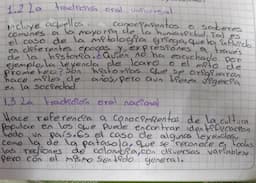 1.2 La tradición oral universal
Incluye aquellos conocimientos o saberes
comunes a la mayoría de la humanidad, Tal es
el caso de la mitología griega, que ha influido
en diferentes épocas y expresiones a través
de la historia. ¿Quién no ha escuchado por
ejemplo la leyenda de Icaro o el mito de
Prometeo? Son historias que se originaron
hace miles de años, pero aun tienen vigencia
en la sociedad.
1.3 La tradición oral nacional
Hace referencia a conocimientos de la cultura
popular en los que puede encontrar identificación
todo un país. Es el caso de algunas leyendas,
como la de la patasola, que se reconoce en todas
las regiones de colombia, con diversas variables
pero con el mismo sentido general.